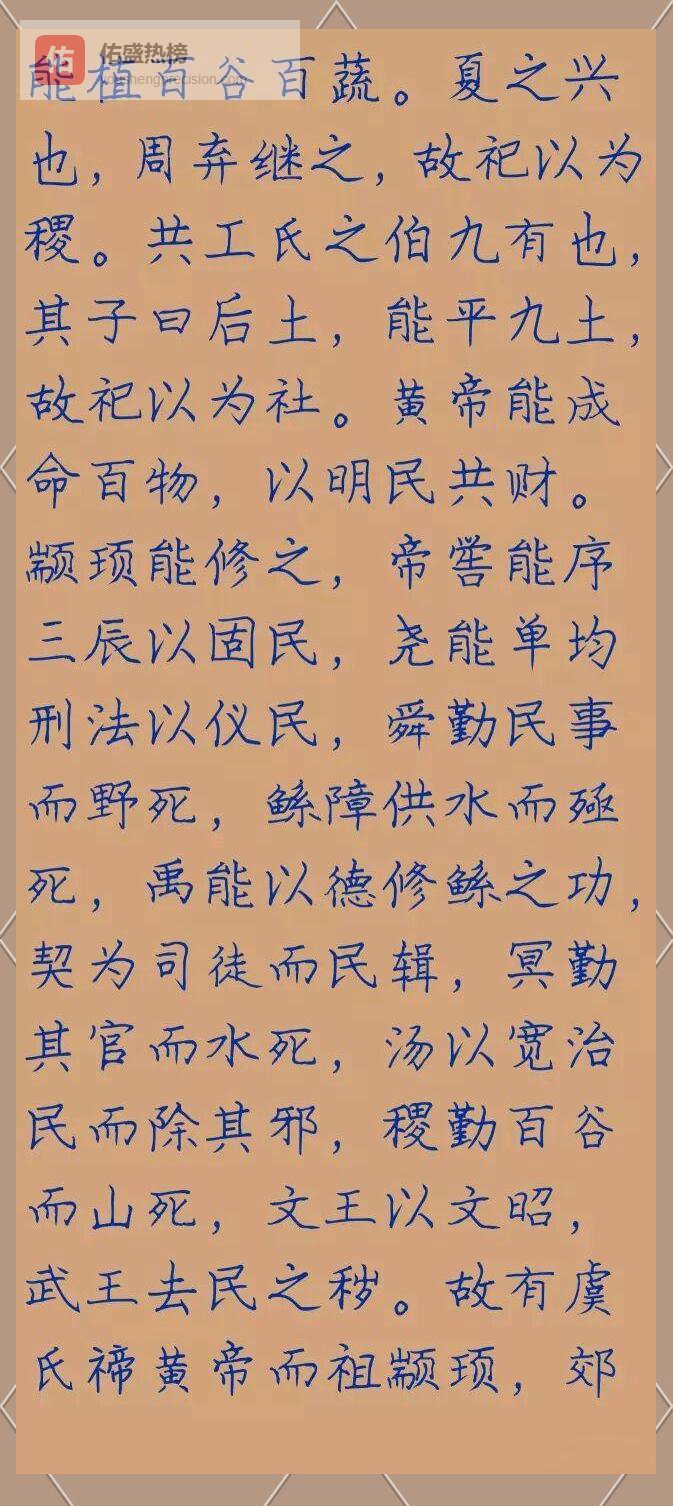 佑 佑盛热榜
youshengprecision.com
能植百谷百蔬。夏之兴
也，周弃继之，故祀以为
稷。共工氏之伯九有也，
其子曰后土，能平九土，
故祀以为社。黄帝能成
命百物，以明民共财。
颛顼能修之，帝喾能序
三辰以固民，尧能单均
刑法以仪民，舜勤民事
而野死，鲧障供水而殛
死，禹能以德修鲧之功，
契为司徒而民辑，冥勤
其官而水死，汤以宽治
民而除其邪，稷勤百谷
而山死，文王以文昭，
武王去民之秽。故有虞
氏禘黄帝而祖颛顼，郊